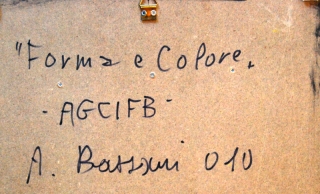 "Forma e Colore.
- AGCIFB -
A. Bassani 010